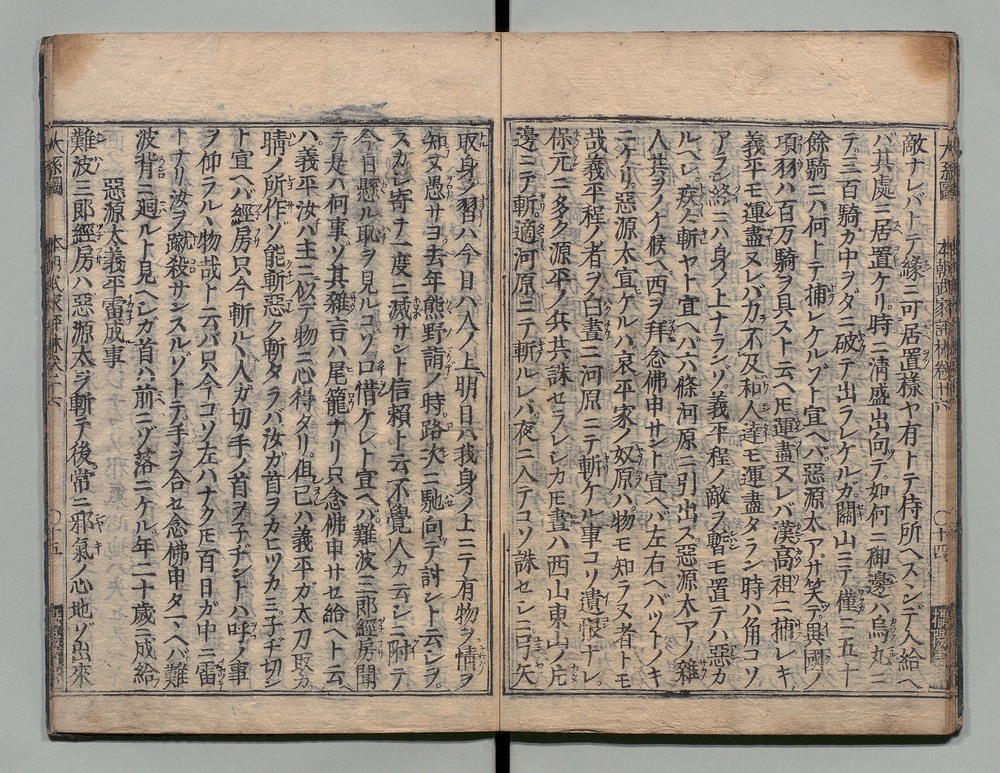 敵ナレバトテ緣ニ可居置樣ヤ有トテ侍所ヘスンデ入給ヘ
バ其處ニ居置ケリ時ニ淸盛出向テ如何ニ御邊ハ烏丸ニ
テ三百騎カ中ヲダニ破テ出ラレケルガ關山ニテ僅ニ五十
餘騎ニハ何トテ捕レケルゾト宣ヘバ惡源太ア弁笑テ異國ノ
項羽ハ百万騎ヲ具ストニ云ヘ𪜈運盡ヌレバ漢高祖ニ捕レキ
義平モ運盡ヌレバ力不及和人達モ運盡タラン時ハ角コソ
アラン終ニハ身ノ上ナランゾ義平程ノ敵ヲ暫モ置テハ惡カ
ルベシ疾々斬ヤト宣ヘバ六條河原ニ引出ス惡源太アノ雜
人共ヲノケ候ヘ西ヲ拜念佛申サント宣ヘバ左右ヘバットノキ
ニケリ惡源太宣ケルハ哀平家ノ奴原ハ物モ知ラヌ者トモ
哉義平程ノ者ヲ白晝ニ河原ニテ斬ケル事コソ遺恨ナレ
保元ニ多ク源平ノ兵共誅セラレシカ𪜈晝ハ西山東山ノ片
邊ニテ斬適河原ニテ斬ルレバ夜ニ入テコソ誅セシニ弓矢
取身ノ習ハ今日ハ人ノ上明日ハ我身ノ上ニテ有物ヲ情ヲ
知ヌ愚サヨ去年熊野詣ノ時路次ニ馳向テ討ント云シヲ
スカシ寄テ一度ニ滅サント信賴ト云不覺人カ云シニ附テ
今日懸ル恥ヲ見ルコソ口惜ケレト宣ヘバ難波三郎經房聞
テ是ハ何事ゾ其雜言ハ尾籠ナリ只念佛申サセ給ヘト云
ハ義平汝ハ主ニ似テ物ニ心得タリ但己ハ義平ガ太刀取カ
晴ノ所作ゾ能斬惡ク斬タラバ汝ガ首ヲカニツカミ子ヂ切ン
ト宣ヘバ經房只今斬ルヽ人ガ切手ノ首ヲ子ヂントハ呼ノ事
ヲ仰ラルヽ物哉ト云バ只今コソ左ハナク𪜈百日ガ中ニ雷
トナリ汝ヲ蹴殺サンスルゾトテ手ヲ合セ念佛申タマヘバ難
波背ニ廻ルト見ヘシガ首ハ前ニゾ落ニケル年二十歲ニ成給
惡源太義平雷成事
難波三郎經房ハ惡源太ヲ斬テ後常ニ邪氣ノ心地ゾ出來
本朝武家評林卷廿六
十四
十五
大系圖